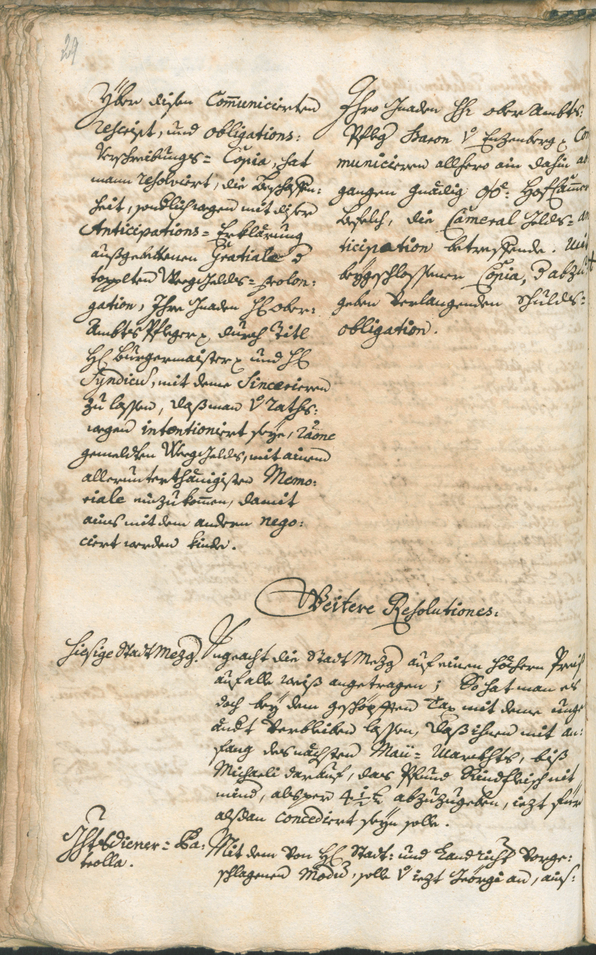 29
Yber disen Com̄unicierten
rescript, und obligations:
Verschreibungs= Copia, hat
mann resolviert, die beschaffen:
heit, sonderlich wegen mit diser
Anticipations= Erklärung
außgebettenen Gratiale d
dopplten Weeggelds= prolon:
gation, Ihro Gnaden H: ober=
Ambts Pfleger p durch Titl
H: burgermaister p und H:
Syndicus, mit deme Sincerieren
zu lassen, daß man v Raths:
wegen intentioniert seÿe, ratione
gemeldten Weeggelds, mit ainem
allerunterthänigisten Memo:
riale einzukom̄en, damit
ains mit dem andern nego:
ciert werden kinde.
Ihro Gnaden H: ober Ambts:
Pfleg Baron v Enzenberg p Co
municieren allhero ain dahin
gangen Gnädig Hofkam̄er
befelch, die Cameral gelds= an
ticipation betreffende. Mit
beÿgeschlossener Copia, d abzu
geben verlangenden Schulds=
obligation.
Weitere Resolutiones:
Hiesige Statt Mezg.
Ungeacht die Statt Mezg auf einen höchern Preiß
auf alle weiß angetragen; So hat man es
doch beÿ dem geschöpfften Tax mit deme unge
ändt verbleiben lassen, daß ihnen mit an:
fang des nächsten Maii= Marckhts, biß
Michaeli darauf, das Pfund Rindfleisch nit
mind, als per 4½ x abzugeben, iezt für
alßdan concediert seÿn solle.
Ghtsdiener= Pa:
trolla.
Mit dem von H: Statt= und Landricht vorge:
schlagenen Modo, solle v iezt Georgi an, auf: